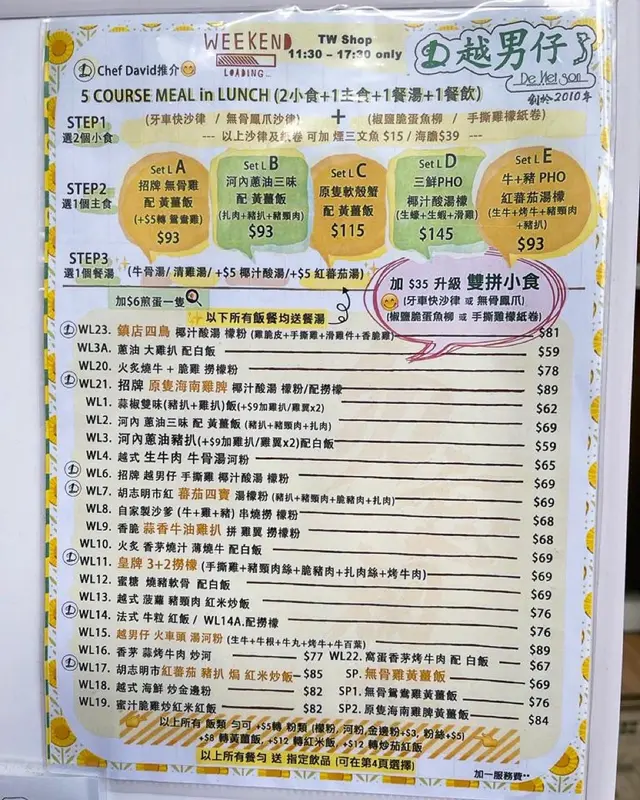 WEEKEND
LOADING...
TW Shop
11:30 - 17:30 only
越男仔
De Nelson
創於2010年
Chef David推介
5 COURSE MEAL in LUNCH (2小食+1主食+1餐湯+1餐飲)
STEP1
選2個小食
(牙車快沙律 / 無骨鳳爪沙律) + (椒鹽脆蛋魚柳 / 手撕雞檬紙卷)
--- 以上沙律及紙卷 可加 煙三文魚 $15 / 海膽$39 ---
STEP2
選1個主食
Set L A
招牌 無骨雞
配 黃薑飯
(+$5轉 鴛鴦雞)
$93
Set L B
河內蔥油三味
配 黃薑飯
(扎肉+豬扒+豬頸肉)
$93
Set L C
原隻軟殼蟹
配 黃薑飯
$115
Set L D
三鮮PHO
椰汁酸湯檬
(生蠔+生蝦+滑雞)
$145
Set L E
牛+豬 PHO
紅蕃茄湯檬
(生牛+烤牛+豬頸肉
+豬扒)
$93
STEP3
選1個餐湯
(牛骨湯/ 清雞湯/ +$5 椰汁酸湯/+$5 紅蕃茄湯)
加 $35 升級 雙拼小食
(牙車快沙律 或 無骨鳳爪)
(椒鹽脆蛋魚柳 或 手撕雞檬紙卷)
加$6煎蛋一隻
以下所有飯餐均送餐湯
WL23. 鎮店四鳥 椰汁酸湯 檬粉 (雞脆皮+手撕雞+滑雞件+香脆雞) $81
WL3A. 蔥油 大雞扒 配白飯 $59
WL20. 火炙燒牛 + 脆雞 撈檬粉 $78
WL21. 招牌 原隻海南雞脾 椰汁酸湯 檬粉/配撈檬 $89
WL1. 蒜椒雙味(豬扒+雞扒)飯(+$9加雞扒/雞翼x2) $62
WL2. 河內 蔥油三味 配 黃薑飯 (豬扒+豬頸肉+扎肉) $69
WL3. 河內蔥油豬扒(+$9加雞扒/雞翼x2)配白飯 $59
WL4. 越式 生牛肉 牛骨湯河粉 $65
WL6. 招牌 越男仔 手撕雞 椰汁酸湯 檬粉 $69
WL7. 胡志明市紅 蕃茄四寶 湯檬粉 (豬扒+豬頸肉+脆豬肉+扎肉) $69
WL8. 自家製沙爹 (牛+雞+豬) 串燒撈 檬粉 $68
WL9. 香脆 蒜香牛油雞扒 拼 雞翼 撈檬粉 $68
WL10. 火炙 香茅燒汁 薄燒牛 配白飯 $69
WL11. 皇牌 3+2撈檬 (手撕雞+豬頸肉絲+脆豬肉+扎肉絲+烤牛肉) $69
WL12. 蜜糖 燒豬軟骨 配白飯 $69
WL13. 越式 菠蘿 豬頸肉 紅米炒飯 $76
WL14. 法式 牛粒 紅飯 / WL14A.配撈檬 $76
WL15. 越男仔 火車頭 湯河粉 (生牛+牛根+牛丸+烤牛+牛百葉) $89
WL16. 香茅 蒜烤牛肉 炒河 $77 WL22. 窩蛋香茅烤牛肉 配 白飯 $67
WL17. 胡志明市紅蕃茄 豬扒 焗 紅米炒飯 $85 SP. 無骨雞黃薑飯 $69
WL18. 越式 海鮮 炒金邊粉 $82 SP1. 無骨鴛鴦雞黃薑飯 $76
WL19. 蜜汁脆雞炒紅米紅飯 $82 SP2. 原隻海南雞脾黃薑飯 $84
以上所有 飯類 勻可 +$5轉 粉類 (檬粉, 河粉,金邊粉+$3, 粉絲+$5)
+$8 轉黃薑飯, +$12 轉紅米飯, +$12 轉炒茄紅飯
以上所有餐勻 送 指定飲品 (可在第4頁選擇)
加一服務費**